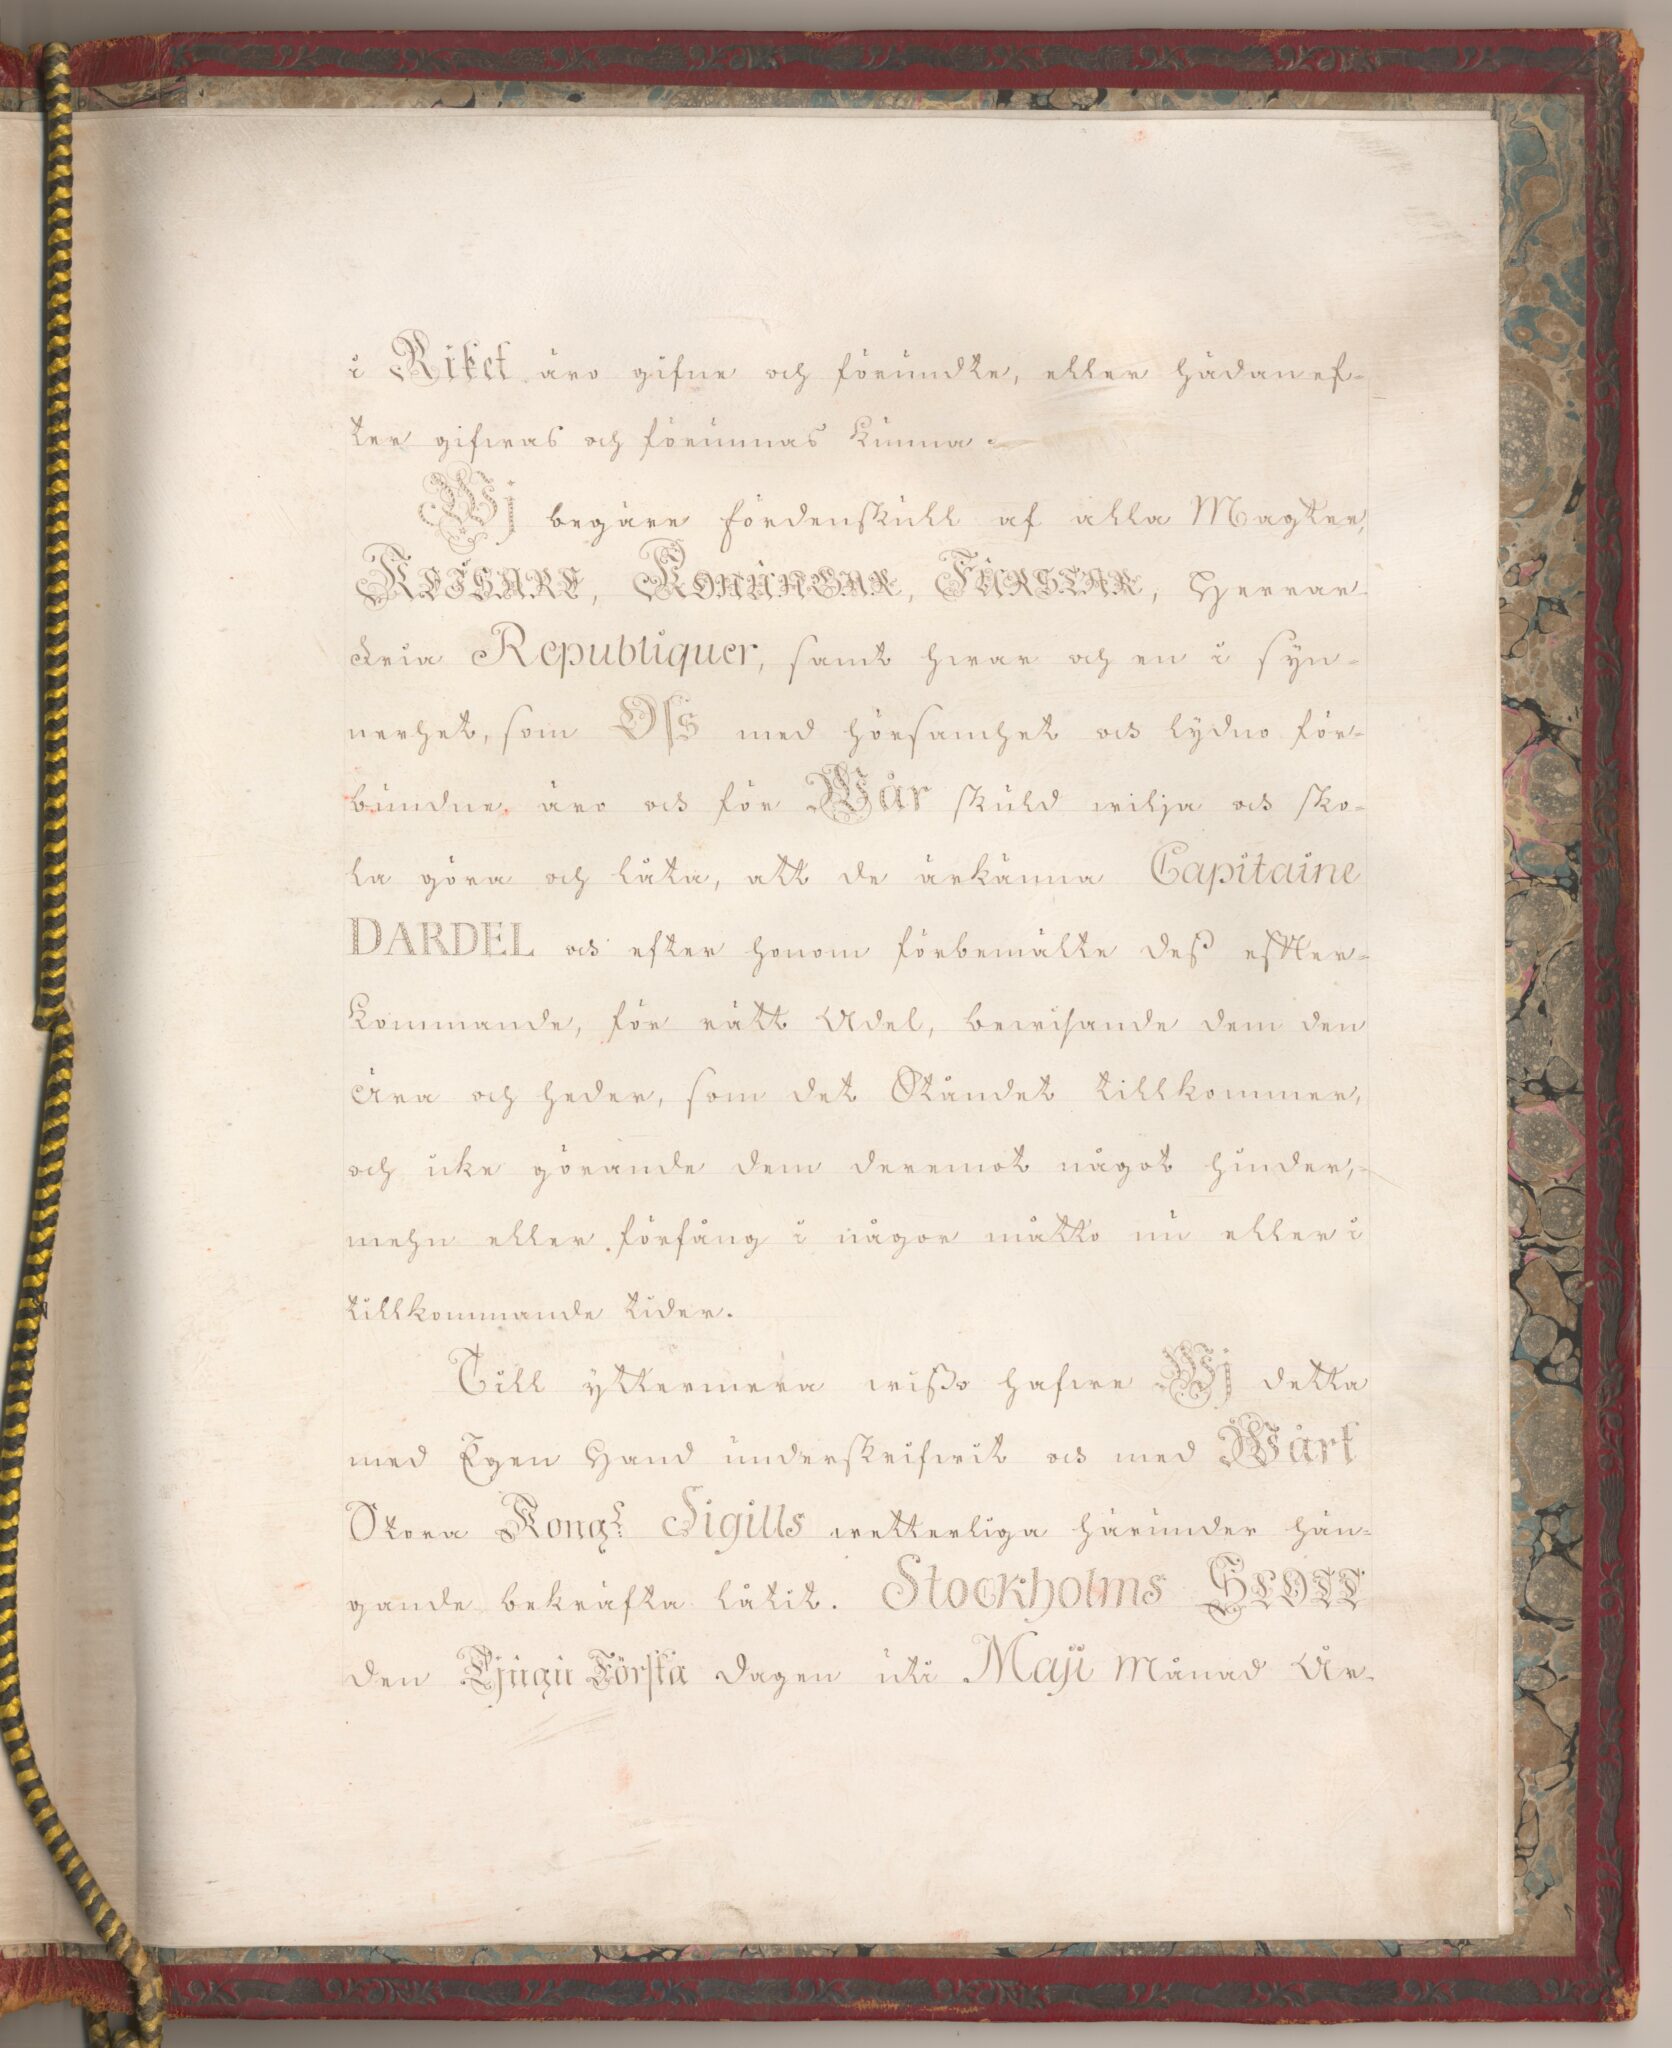 i Riket äro gifne och förundte, eller hädanef-
ter gifwas och förunnas kunna.
Wj begäre fördenskull af alla Magter,
KEISARE, KONUNGAR, FURSTAR, Herrar
Fria Republiquer, samt hwar och en i syn-
nerhet, som Oss med hörsamhet och lydno för-
bundne äro och för Wår skuld wilja och sko-
la göra och låta, att de ärkänna Capitaine
DARDEL och efter honom förbemälte deß efter-
kommande, för rätt Adel, bewisande dem den
Ära och heder, som det Ståndet tillkommer,
och icke görande dem deremot något hinder,
mehn eller förfång i någor måtto nu eller i
tillkommande tider.
Till yttermera wißo hafwe Wj detta
med Egen Hand underskrifwit och med Wårt
Stora Kongl. Sigills wetterliga härunder hän-
gande bekräfta låtit. Stockholms SLOTT
den Tjugu Första dagen uti Maji Månad År-